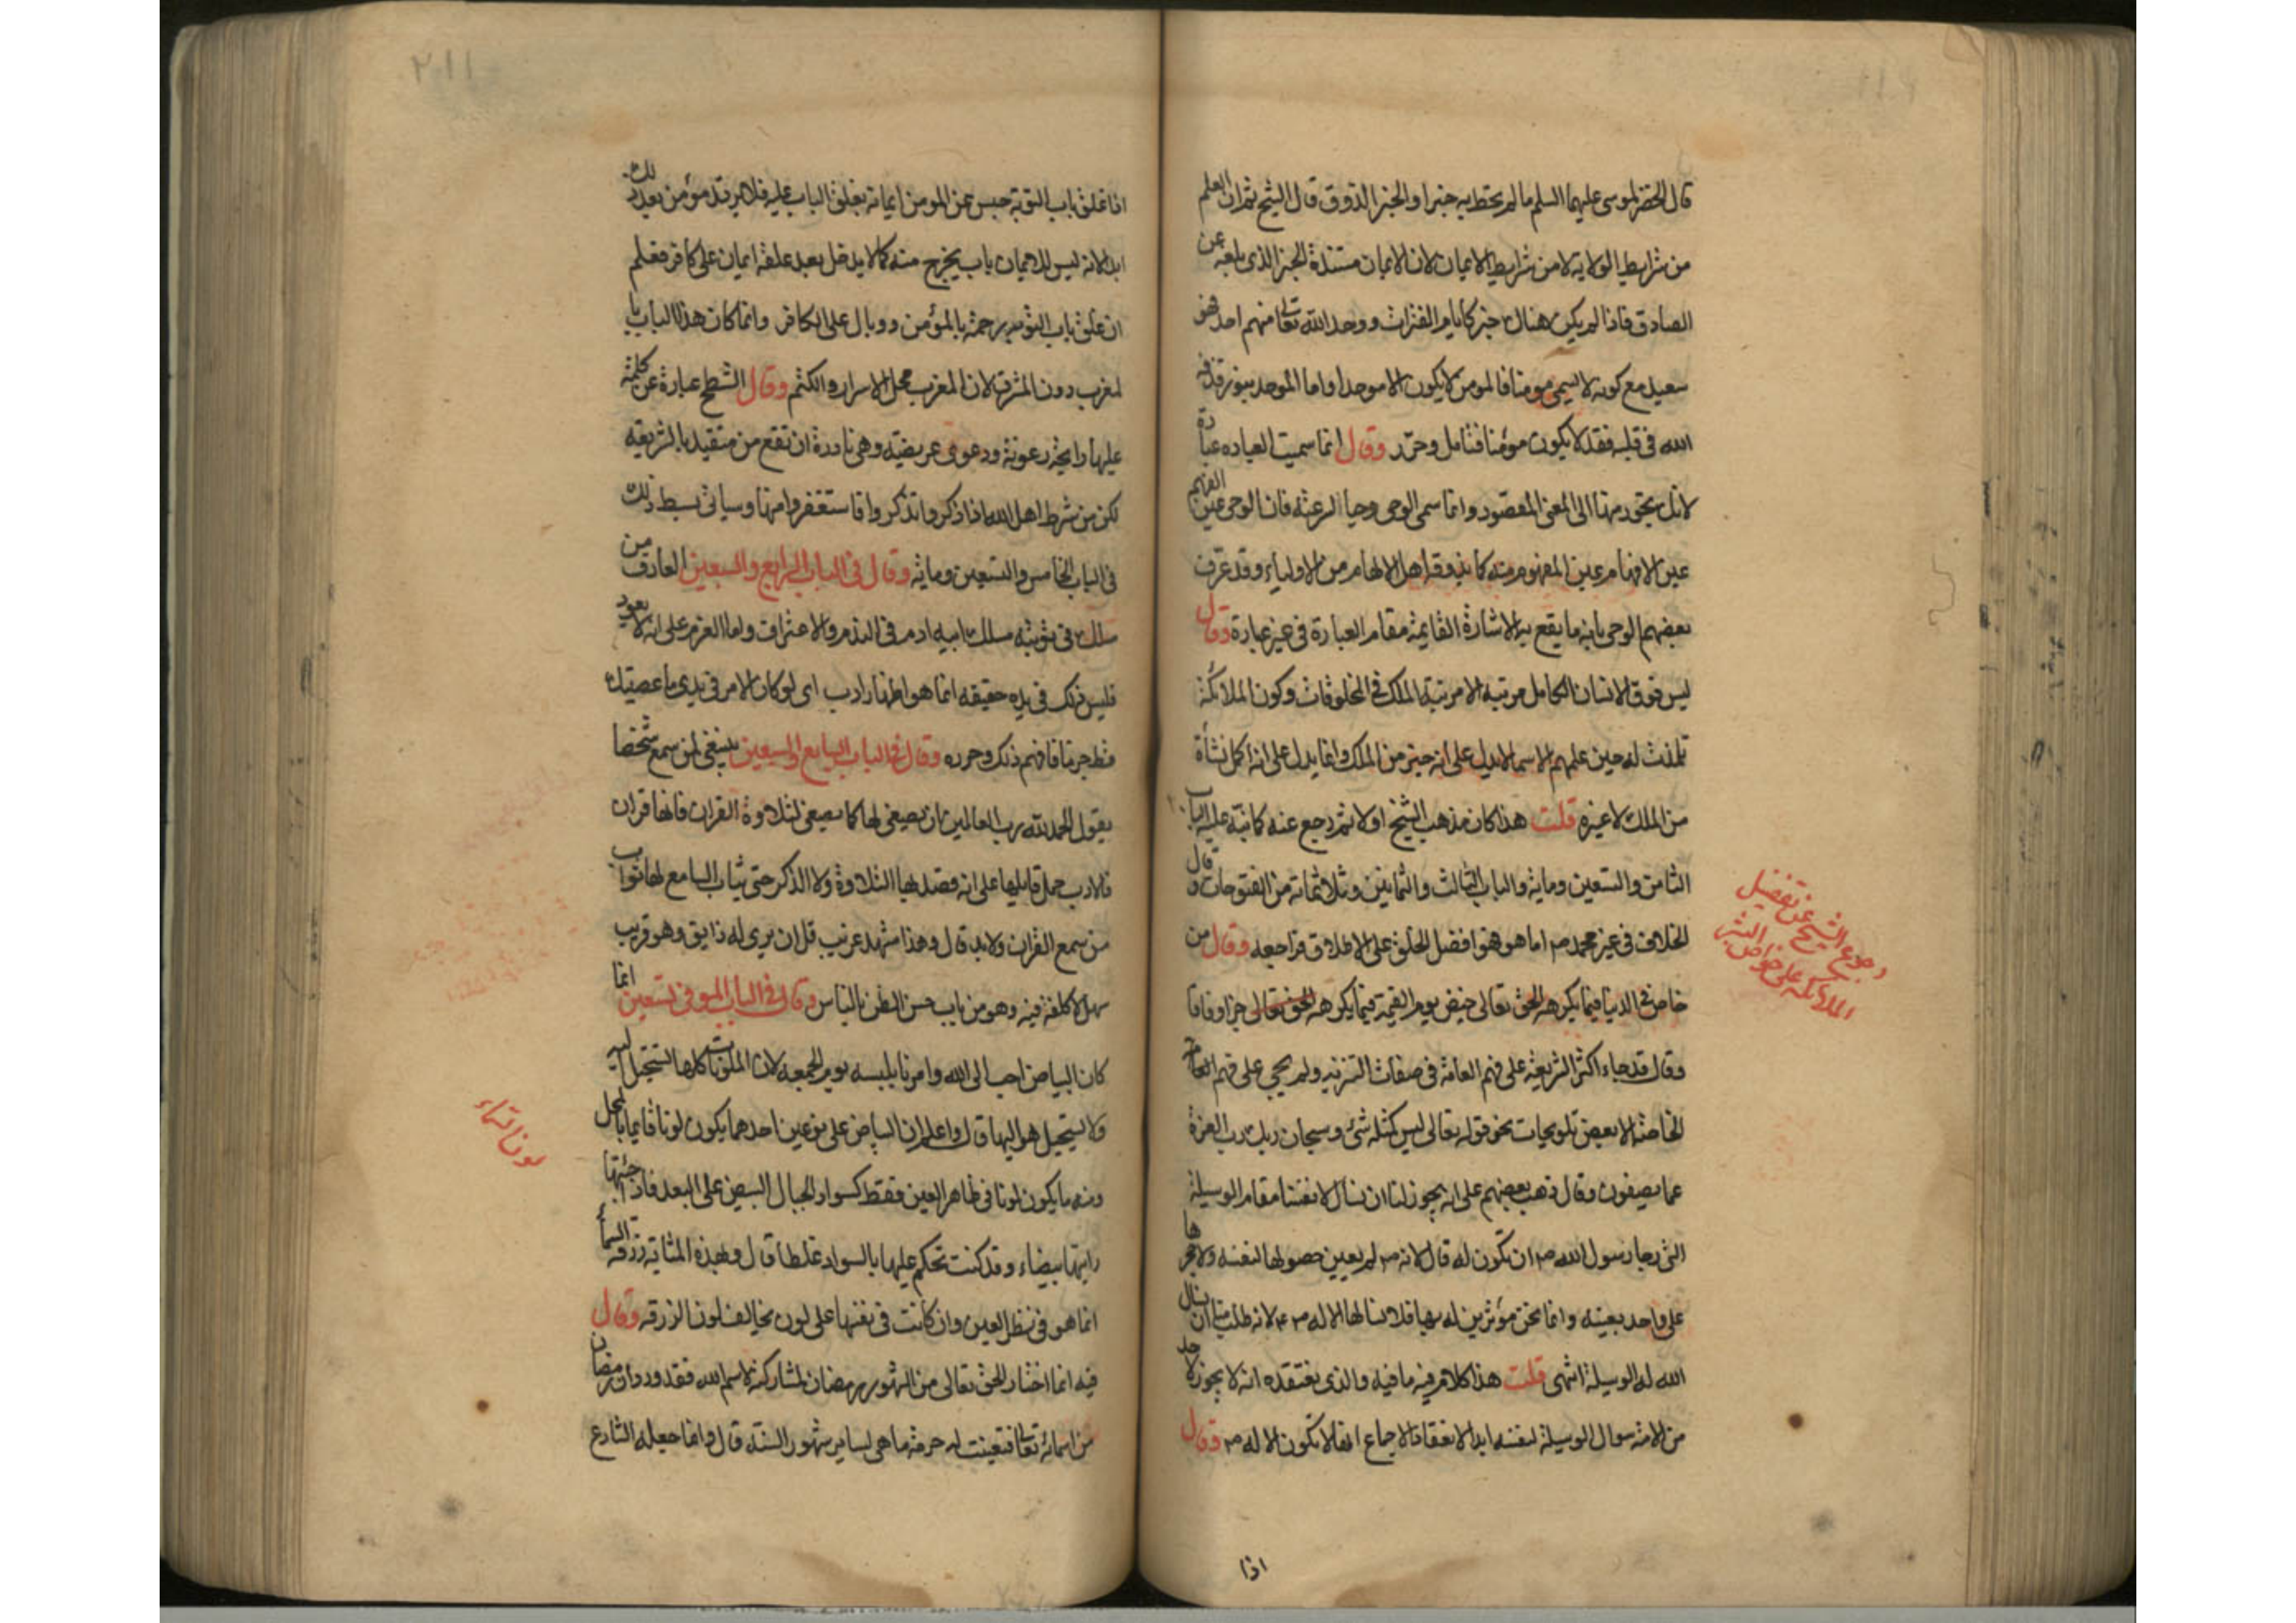 قال الخضر لموسى عليهما السلم ما لم يحط به خبرا والخبر الذوق قال الشيخ ثم ان العلم
من شرايط الولاية لا من شرايط الايمان لان الايمان مستنده الخبر الذى بلغه عن
الصادق فاذا لم يكن هناك خبر كايام الفترات ووحد الله تعالى منهم احد فهو
سعيد مع كونه لا يسمى مومنا فالمومن لا يكون الا موحدا واما الموحد بنور قذفه
الله فى قلبه فقد لا يكون مومنا فتامل وحرر وقال انما سميت العباده عبارة
لانك تجوز منها الى المعنى المقصود وانما سمى الوحى وحيا لسرعته فان الوحى عين الفهم
عين الافهام عين المفهوم منه كما يذوقه اهل الالهام من الاولياء وقد عرف
بعضهم الوحى بانه ما يقع به الاشارة القايمة مقام العبارة فى غير عبارة وقال
ليس فوق الانسان الكامل مرتبه الا مرتبة الملك فى المخلوقات وكون الملائكة
تلمذت له حين علمهم الاسما لا يدل على انه خير من الملك وانما يدل على انه اكمل نشأة
من الملك لا غير قلت هذا كان مذهب الشيخ اولا ثم رجع عنه كما نبه عليه الباب
الثامن والتسعين وماية والباب الثالث والثمانين وثلاثماية من الفتوحات وقال
الخلاف فى غير محمد ص اما هو فهو افضل الخلق على الاطلاق فراجعه وقال من
خاض فى الدنيا فيما يكرهه الحق تعالى خيض يوم القيمة فيما يكرهه الحق تعالى جزا وفاقا
وقال قد جاء اكثر الشريعة على فهم العامة فى صفات التنزيه ولم يجى على فهم الخاصة
الخاصة الا بعض تلويحات نحو قوله تعالى ليس كمثله شئ وسبحان ربك رب العزة
عما يصفون وقال ذهب بعضهم على انه يجوز لنا ان نسأل لانفسنا مقام الوسيلة
التى رجا رسول الله ص ان تكون له قال لانه ص لم يعين حصولها لنفسه ولا حجرها
على واحد بعينه وانما نحن مؤثرين له بها فلا نسالها الا له ص لانه طلب منا ان نسال
الله له الوسيلة انتهى قلت هذا كلام فيه ما فيه والذى نعتقده انه لا يجوز لاحد
من الامة سوال الوسيلة لنفسه ابدا لانعقاد الاجماع انها لا تكون الا له ص وقال
رجوع الشيخ عن تفضيل
الملائكه على خواص البشر
اذا
٢١١
اذا غلق باب التوبة حبس عن المومن ايمانه بغلق الباب عليه فلا يرتد مؤمن بعد ذلك
ابدا لانه ليس للايمان باب يخرج منه كما لا يدخل بعد غلقه ايمان على كافر فعلم
ان غلق باب التوبه رحمة بالمؤمن ووبال على الكافر وانما كان هذا الباب با
لمغرب دون المشرق لان المغرب محل الاسرار والكتم وقال الشطح عبارة عن كلمة
عليها رايحة رعونة ودعوى عريضة وهى نادرة ان تقع من متقيد بالشريعه
لكن من شرط اهل الله اذا ذكروا تذكروا فاستغفروا منها وسياتى بسط ذلك
فى الباب الخامس والتسعين وماية وقال فى الباب الرابع والسبعين العارف من
سلك فى توبته مسلك ابيه ادم فى الندم والاعتراف واما العزم على انه لا يعود
فليس ذلك فى يده حقيقه انما هو اظهار ادب اى لو كان الامر فى يدى ما عصيتك
قط جزما فافهم ذلك وحرره وقال فى الباب السابع والسبعين ينبغى لمن سمع شخصا
يقول الحمد لله رب العالمين ان يصغى لها كما يصغى لتلاوة القران فانها قران
فالادب حمل قايلها على انه قصد بها التلاوة ولا الذكر حتى يثاب السامع لها ثواب
من سمع القران ولا بد قال وهذا مشهد غريب قل ان يرى له ذايق وهو قريب
سهل لا كلفة فيه وهو من باب حسن الظن بالناس وقال فى الباب الموفى تسعين انما
كان البياض احب الى الله وامرنا بلبسه يوم الجمعه لان الملونات كلها تستحيل اليه
ولا يستحيل هو اليها قال واعلم ان البياض على نوعين احدهما يكون لونا قايما بالمحل
ومنه ما يكون لونا فى ظاهر العين فقط كسواد الجبال البيض على البعد فاذا جئتها
رايتها بيضاء وقد كنت تحكم عليها بالسواد غلطا قال وبهذه المثابة زرقة السما
انما هو فى نظر العين وان كانت فى نفسها على لون يخالف لون الزرقه وقال
فيه انما اختار الحق تعالى من الشهور رمضان لمشاركته لاسم الله فقد ورد ان رمضان
من اسمائه تعالى فتعينت له حرمة ما هى لساير شهور السنة قال وانما جعله الشارع